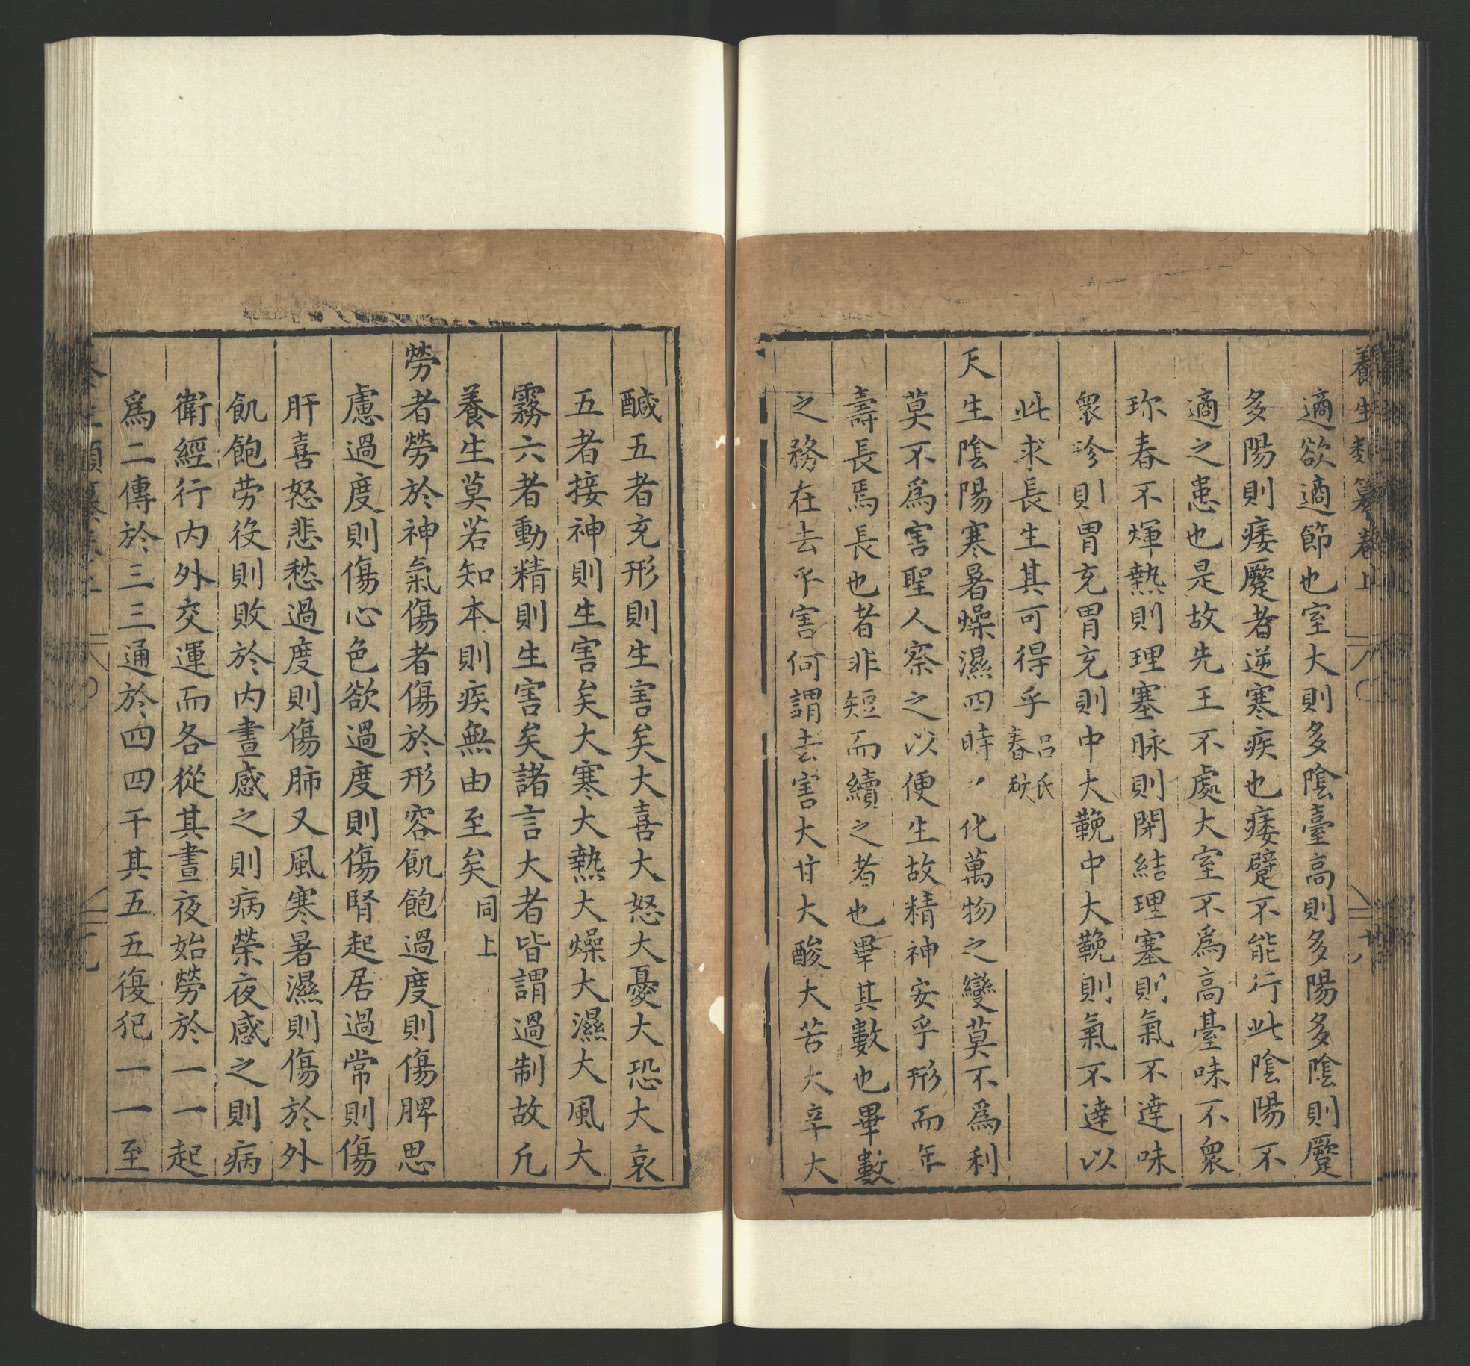 養生類纂卷上
適欲適節也室大則多陰臺高則多陽多陰則蹷
多陽則痿蹷者逆寒疾也痿躄不能行此陰陽不
適之患也是故先王不處大室不爲高臺味不衆
珎春不煇熱則理塞脉則閉結理塞則氣不達味
衆珍則胃充胃充則中大鞔中大鞔則氣不達以
此求長生其可得乎吕氏春秋
天生陰陽寒暑燥濕四時〻化萬物之變莫不爲利
莫不爲害聖人察之以便生故精神安乎形而年
壽長焉長也者非短而續之者也畢其數也畢數
之務在去乎害何謂去害大甘大酸大苦大辛大
醎五者充形則生害矣大喜大怒大憂大恐大哀
五者接神則生害矣大寒大熱大燥大濕大風大
霧六者動精則生害矣諸言大者皆謂過制故凢
養生莫若知本則疾無由至矣同上
勞者勞於神氣傷者傷於形容飢飽過度則傷脾思
慮過度則傷心色欲過度則傷腎起居過常則傷
肝喜怒悲愁過度則傷肺又風寒暑濕則傷於外
飢飽劳役則敗於内晝感之則病榮夜感之則病
衛經行内外交運而各從其晝夜始勞於一一起
爲二二傳於三三通於四四干其五五復犯一一至